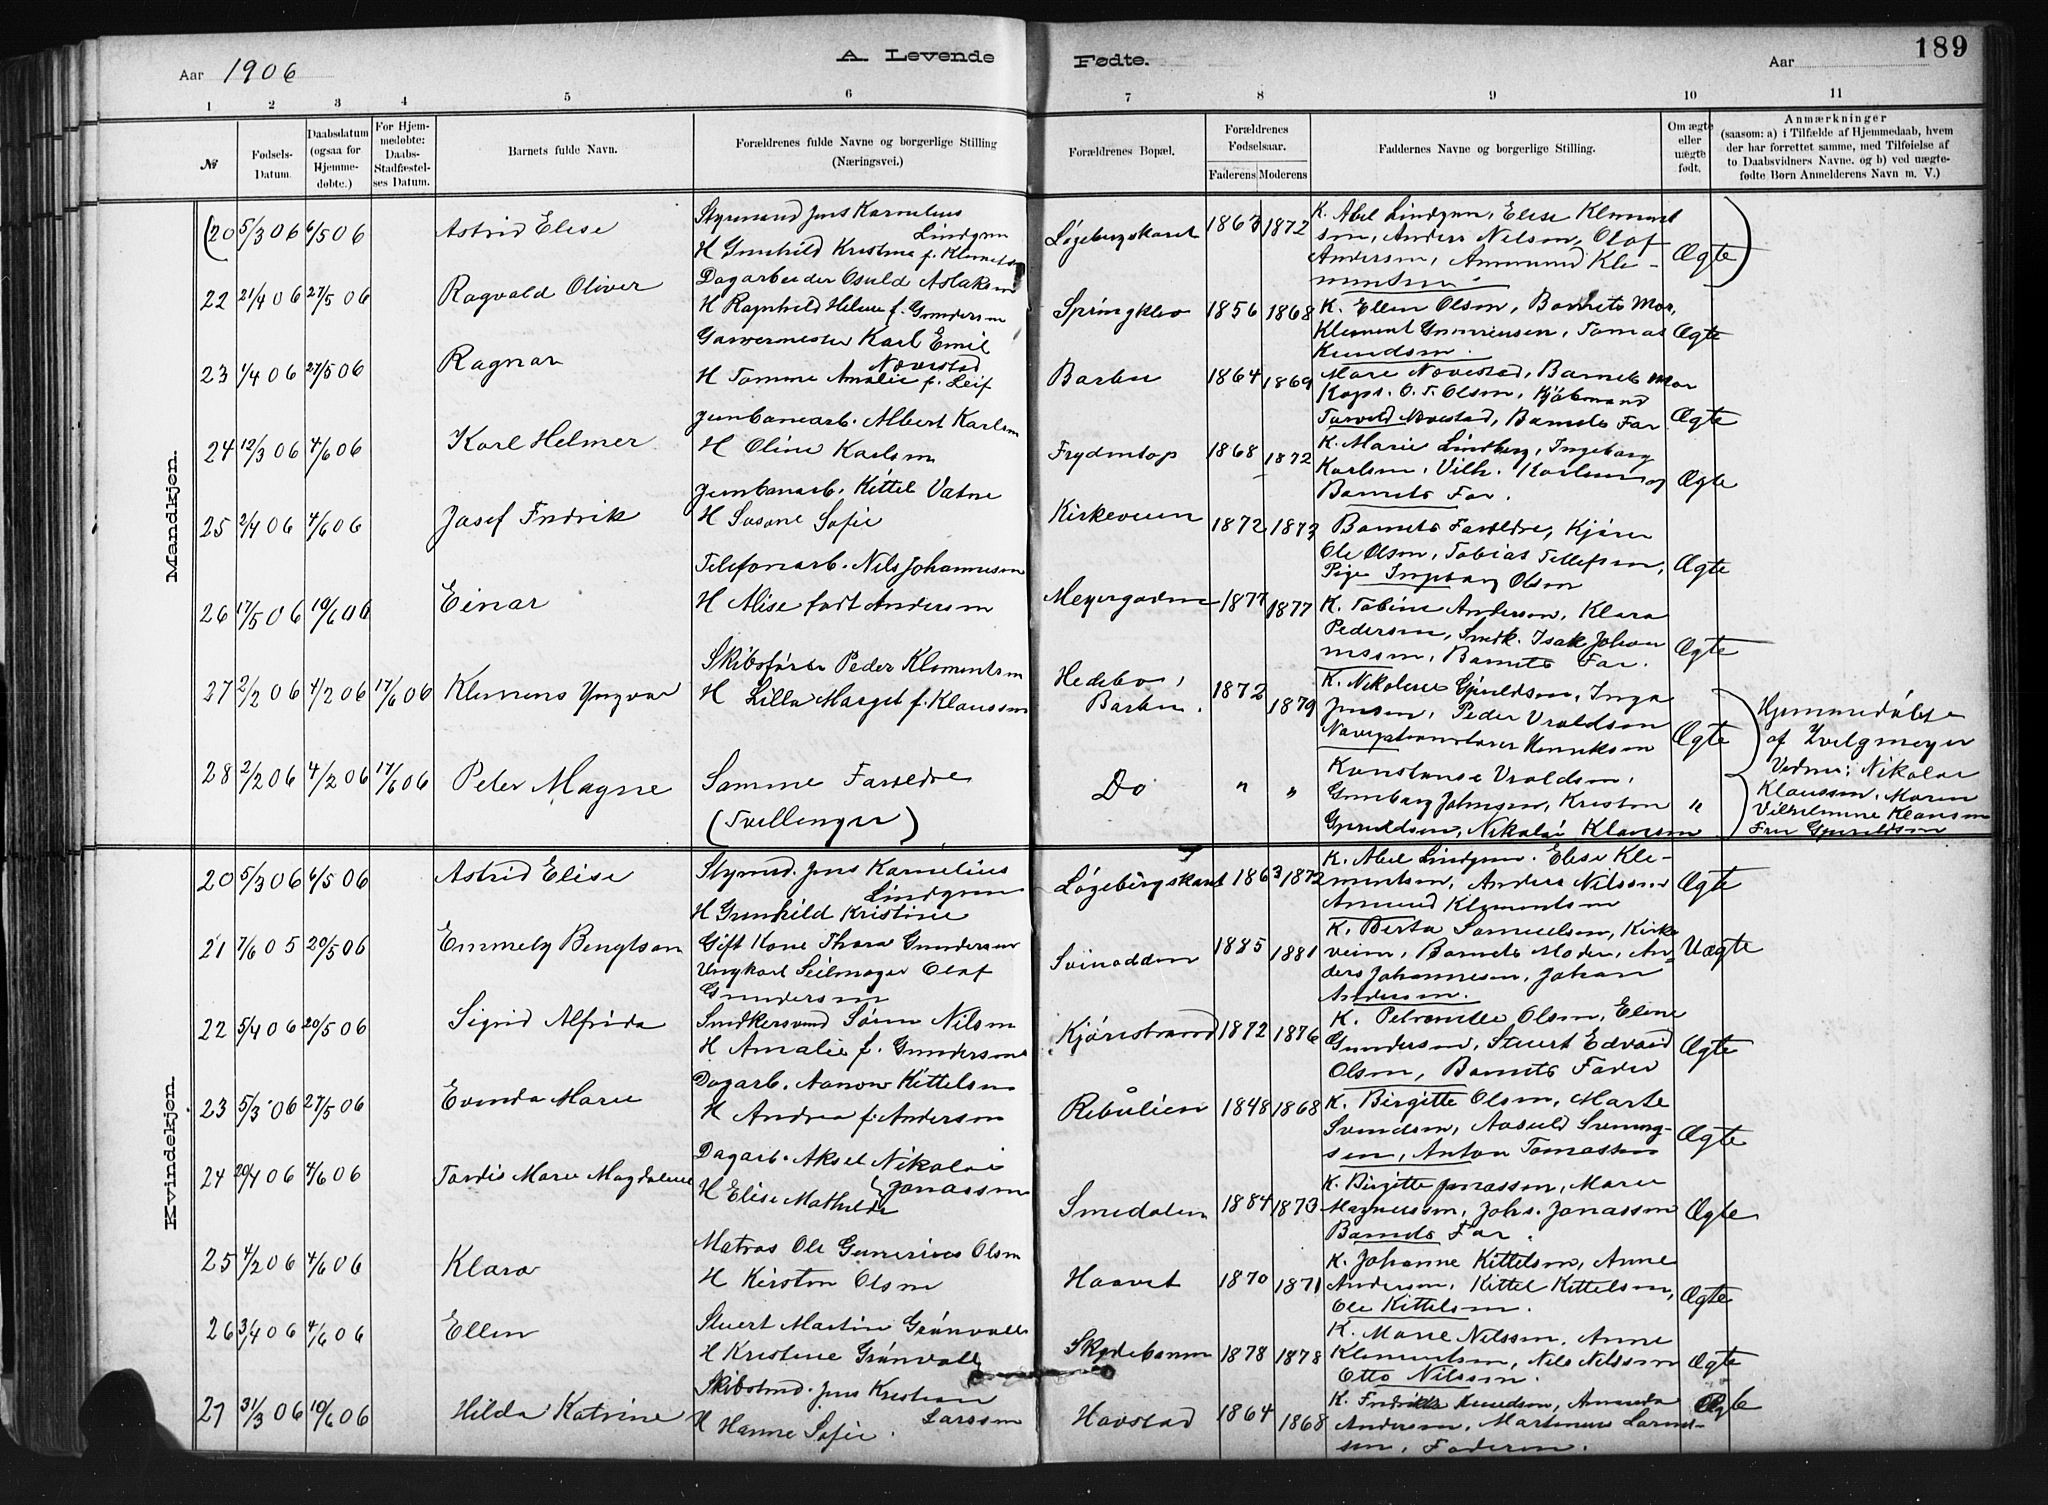 Aar 1906
A. Levende
Fødte.
Aar
189
1 2 3 4 5 6 7 8 9 10 11
№
Fødsels-Datum.
Daabsdatum (ogsaa for Hjemme-døbte.)
For Hjem-medøbte: Daabs-Stadfæstel-ses Datum.
Barnets fulde Navn.
Forældrenes fulde Navne og borgerlige Stilling (Næringsvei.)
Forældrenes Bopæl.
Forældrenes Fødselsaar.
Faderens Moderens
Faddernes Navne og borgerlige Stilling.
Om ægte eller uægte født.
Anmærkninger
(saasom: a) i Tilfælde af Hjemmedaab, hvem
der har forrettet samme, med Tilføielse af
to Daabsvidners Navne. og b) ved uægte-
fødte Børn Anmelderens Navn m. V.)
Mandkjøn.
(20 5/3 06 6/5 06 Astrid Elise
Styrmand Jens Kornelius
Lindgren
H Gunhild Kristine f. Klemetsen
Løgebergskaret 1863 1872
K. Abel Lindgren, Elise Klement
sen, Anders Nilsen, Olof
Andersen, Ammund Kle-
mentsen.
Ægte)
22 21/4 06 27/5 06 Ragvald Oliver
Dagarbeider Osuld Aslaksen
H Ragnhild Helene f. Gundersen
Springklev 1856 1868
K. Ellen Olsen, Barnets Mor,
Klement Gunnriusen, Tomas
Knudsen.
Ægte
23 1/4 06 27/5 06 Ragnar
Garvermester Karl Emil
Novestad
H Tomine Amalie f. Leif
Barbu 1864 1869
Mare Novestad, Barnets Mor
Kaps. O. T. Olsen, Kjøbmand
Torvald Novestad, Barnets Far
Ægte
24 12/3 06 4/6 06 Karl Helmer
Jernbanearb. Albert Karlsen
H Oline Karlsen
Frydentop 1868 1872
K. Marie Lindberg, Ingeborg
Karlsen, Vilh. Karlsen og
Barnets Far.
Ægte
25 2/4 06 4/6 06 Josef Fredrik
Jernbanarb. Kittel Vatne
H Susane Sofie
Kirkeveien 1872 1873
Barnets Forældre, Kjører
Ole Olsen, Tobias Tellefsen,
Pige Ingeborg Olsen
Ægte
26 17/5 06 10/6 06 Einar
Telefonarb. Nils Johannesen
H Alise født Andersen
Meyergaden 1877 1877
K. Tobine Andersen, Klara
Pedersen, Smedk. Isak Johan
nessen, Barnets Far.
Ægte
27 2/2 06 4/2 06 17/6 06 Klemens Yngvar
Skibsfører Peder Klementsen
H Lilla Marget f. Klaussen
Hedebo,
Barbu. 1872 1879
K. Nikoline Gjeruldsen, Inga
Jensen, Peder Vraldsen
Navigationslærer Henriksen
Ægte
Hjemmedøbt
af Zvilgmeyer
Vidner: Nikolai
Klaussen, Maren
Vilhelmine Klausen
Fru Gjeruldsen
28 2/2 06 4/2 06 17/6 06 Peter Magne
Samme Forældre
(Tvillinger)
Do " "
Konstanse Vraldsen,
Gunborg Johnsen, Kristen
Gjeruldsen, Nikolai Klausen "
Kvindekjøn.
20 5/3 06 6/5 06 Astrid Elise
Styrmd. Jens Kornelius
Lindgren
H Gunhild Kristine
Løgebergskaret 1863 1872
K. Abel Lindgren. Elise Kle-
mentsen, Anders Nilssen
Ammund Klementsen
Ægte
21 7/6 05 20/5 06 Emmely Bengtson
Gift Kone Thora Gundersen
Ungkarl Seilmager Olaf
Gundersen
Svinodden 1885 1881
K. Berta Samuelsen, Kirke
veien, Barnets Moder, An-
ders Johannesen, Johan
Andersen.
Uægte
22 5/4 06 20/5 06 Sigrid Alfrida
Smedkersvend Søren Nilsen
H Amalie f. Gundersen
Kjørrestrand 1872 1876
K. Petronille Olsen, Eline
Gundersen, Stuert Edvard
Olsen, Barnets Fader
Ægte
23 5/3 06 27/5 06 Evenda Marie
Dagarb. Aanon Kittelsen
H Andrea f. Andersen
Rebulien 1848 1868
K. Birgitte Olsen, Marte
Svendsen, Aasuld Svenung-
sen, Anton Tomassen
Ægte
24 20/4 06 4/6 06 Tordis Marie Magdalene
Dagarb. Aksel Nikolai
Jonassen
H Elise Mathilde
Smedalen 1884 1873
K. Birgitte Jonassen, Marie
Magnussen, Johs. Jonassen
Barnets Far.
Ægte
25 4/2 06 4/6 06 Klara
Matros Ole Gunerius Olsen
H Kirsten Olsen
Haavet 1870 1871
K. Johanne Kittelsen, Anne
Andersen, Kittel Kittelsen,
Ole Kittelsen.
Ægte
26 3/4 06 4/6 06 Ellen
Stuert Martin Grønvall
H Kristine Grønvall
Skydebanen 1878 1878
K. Marie Nilssen, Anne
Klementsen, Nils Nilssen
Otto Nilssen.
Ægte
27 31/3 06 10/6 06 Hilda Katrine
Skibstmd. Jens Kristian
Larssen
H Hanne Sofie.
Havstad 1864 1868
K. Fredrikke Knudsen, Amanda
Andersen, Martinius Larsen
sen, Faderen.
Ægte